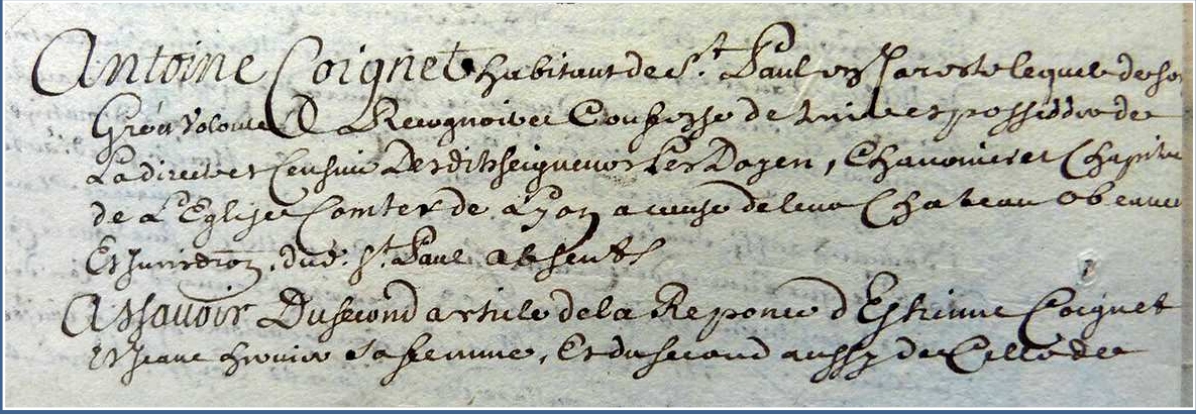 Antoine Coignet habitant de St. Paul en Jarest lequel de son
Gré a Volonté & Recognoit et Confesse de tenir et posseder de
La directe et Censive Desdits seigneurs Les Doyen, Chanoines et Chapitre
de L'Eglise Comtes de Lyon a cause de leur Chateau
Et Jurisdion. dud. St. Paul absents
Assavoir Du second article de la Reponce d'Estienne Coignet
et Jeane sa femme, Et du second aussy de Celle de